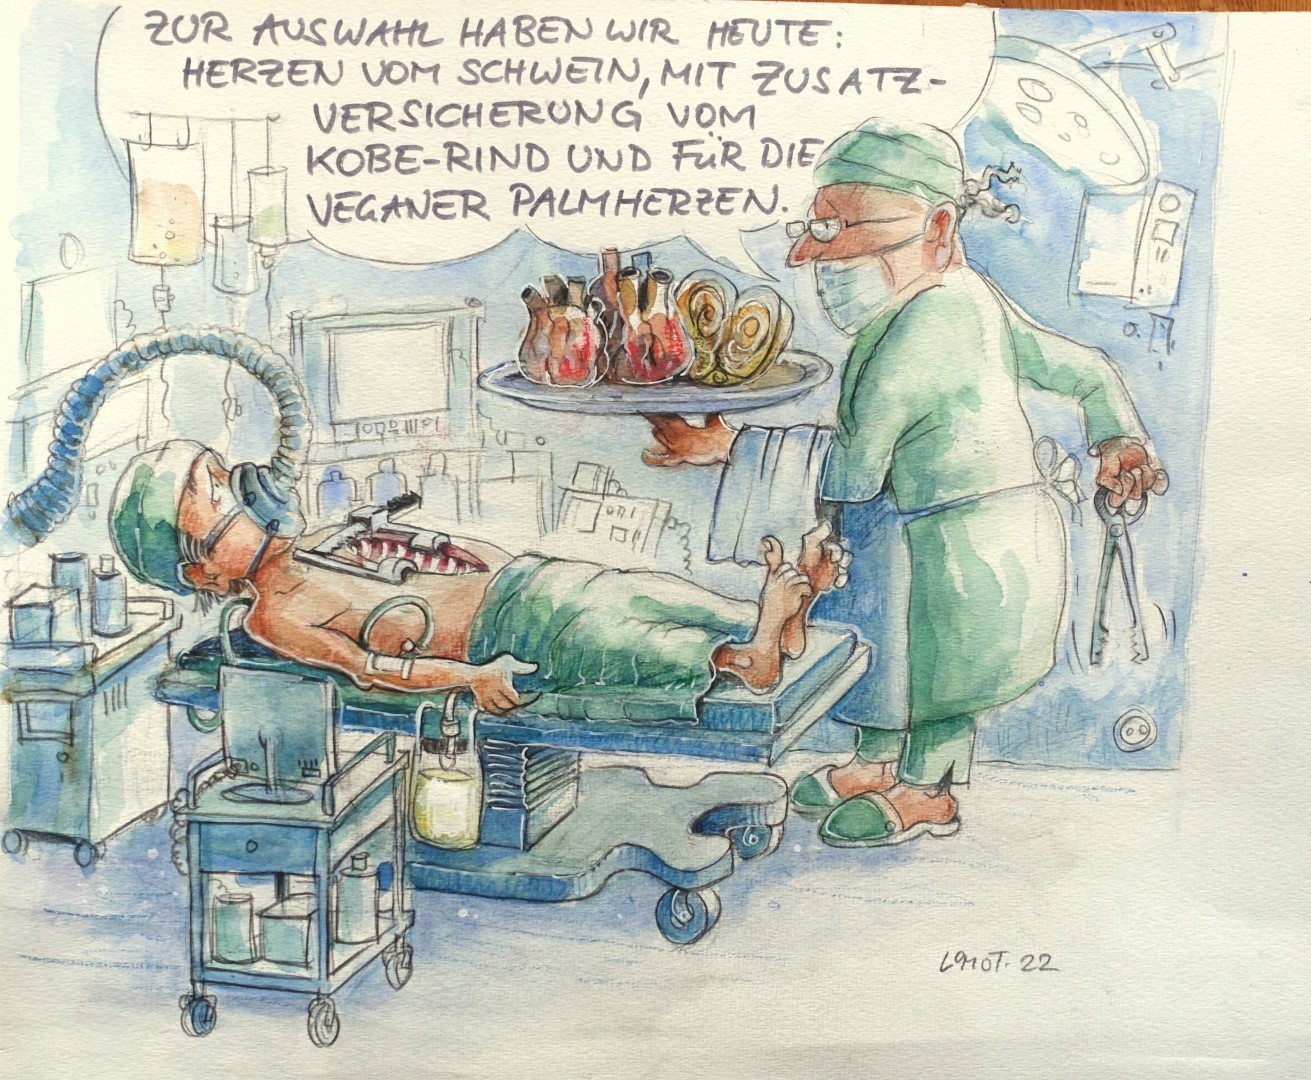 ZUR AUSWAHL HABEN WIR HEUTE:
HERZEN VOM SCHWEIN, MIT ZUSATZ-
VERSICHERUNG VOM
KOBE-RIND UND FÜR DIE
VEGANER PALMHERZEN.
22